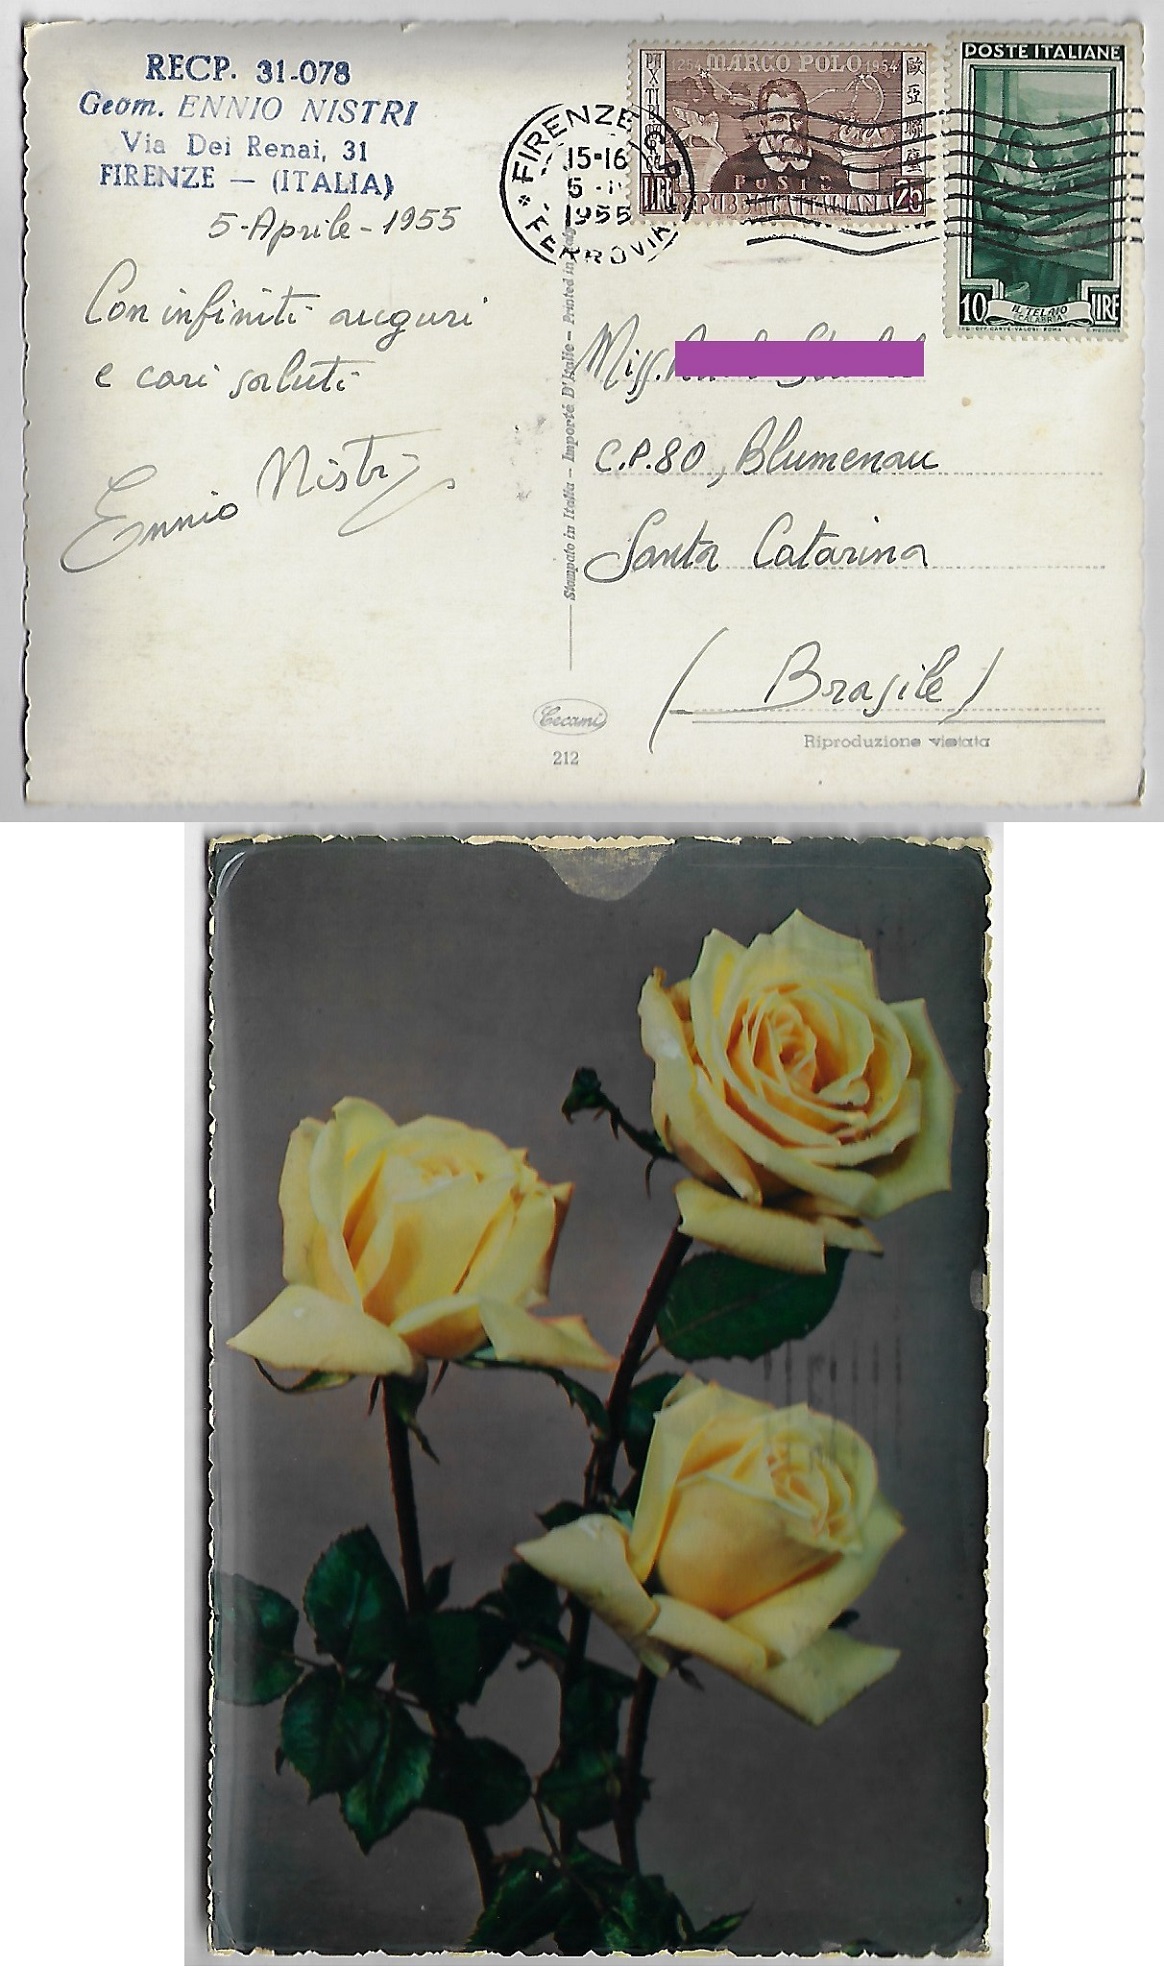 RECP. 31-078
Geom. ENNIO NISTRI
Via Dei Renai, 31
FIRENZE — (ITALIA)
5-Aprile-1955
Con infiniti auguri
e cari saluti
Ennio Nistri
FIRENZE
15-16
5
1955
FERROVIA
1254 MARCO POLO 1954
歐亞聯
POSTE
LIRE REPUBBLICA ITALIANA 25
POSTE ITALIANE
10 LIRE
IL TELAIO
CALABRIA
Stampato in Italia - Importé D'Italie - Printed in Italy
Miss.
C.P.80, Blumenau
Santa Catarina
(Brasile)
Cecami
212
Riproduzione vietata